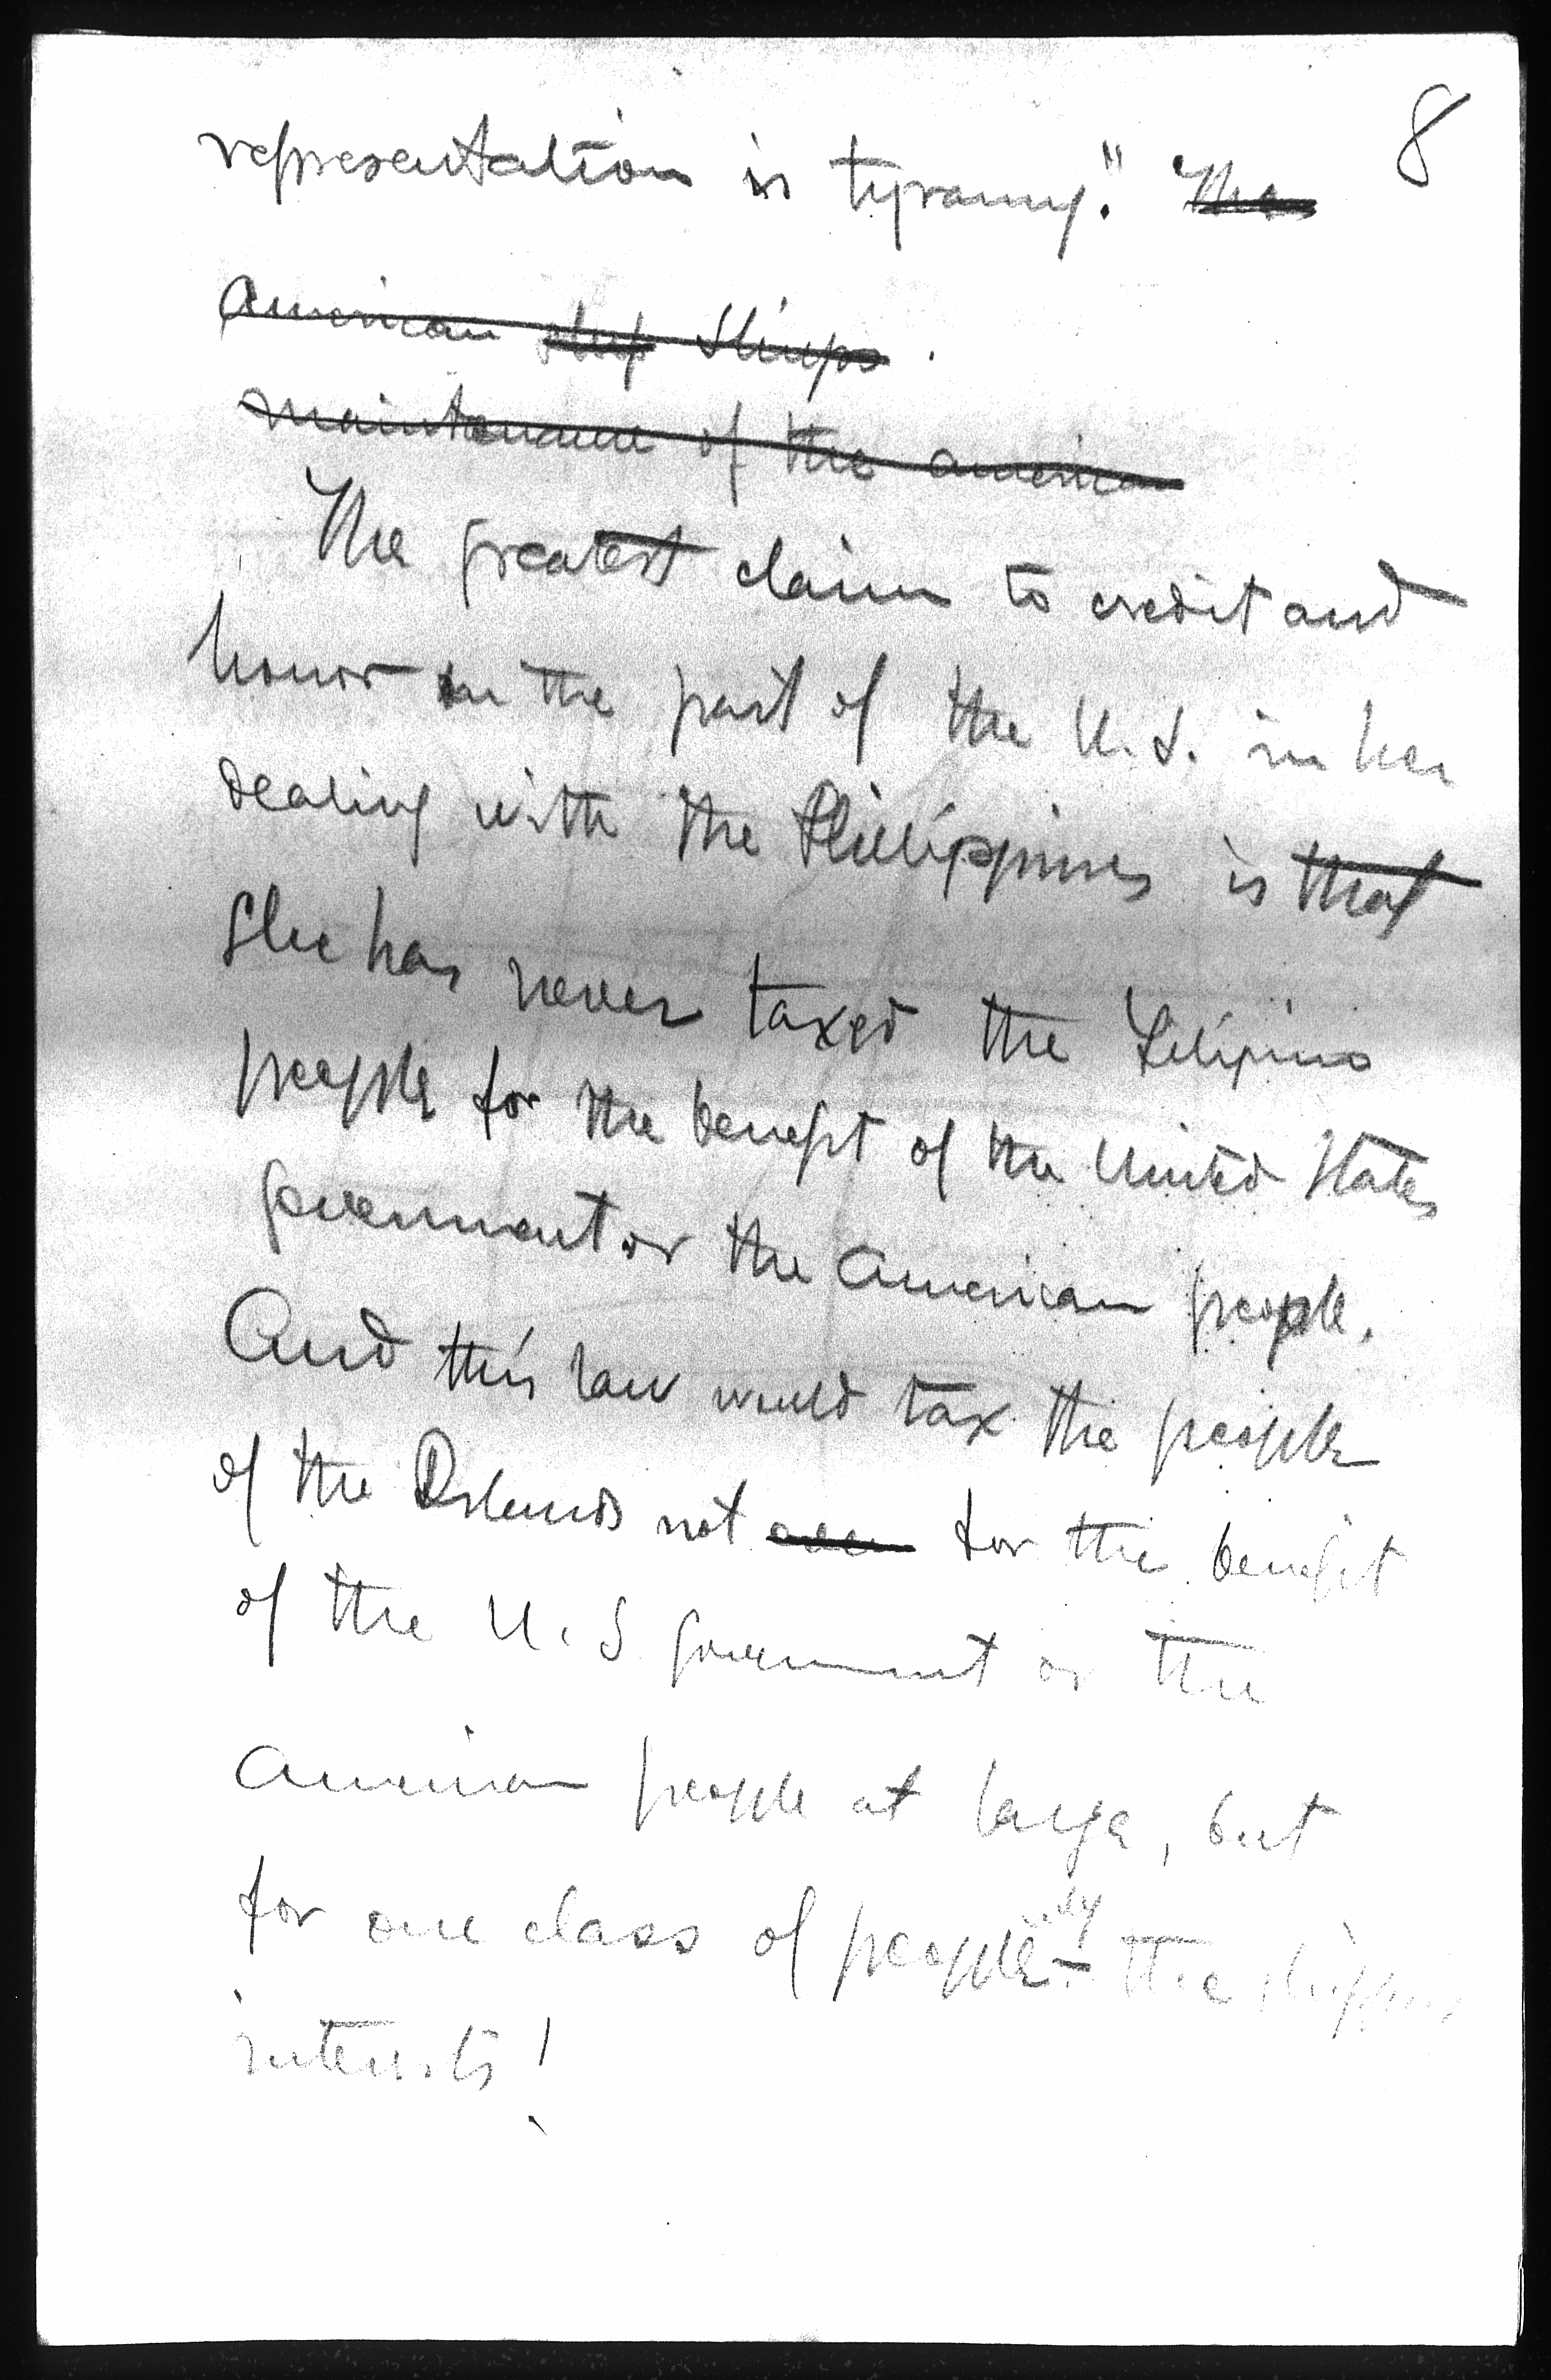 8
representation is tyranny." The
American ship Ships.
maintenance of the American
The greatest claim to credit and
honor on the part of the U.S. in her
dealing with the Phillippines is that
she has never taxed the Filipino
people for the benefit of the United States
government or the American people.
And this law would tax the people
of the Islands not even for the benefit
of the U.S government or the
American people at large, but
only
for one class of people - the shipping
interests!